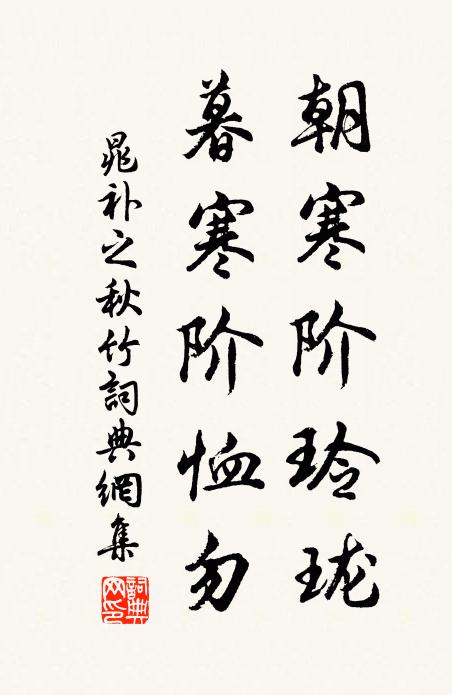 朝寒阶玲珑
暮寒阶恤勿
晁补之秋竹詞典網集
詞典网印